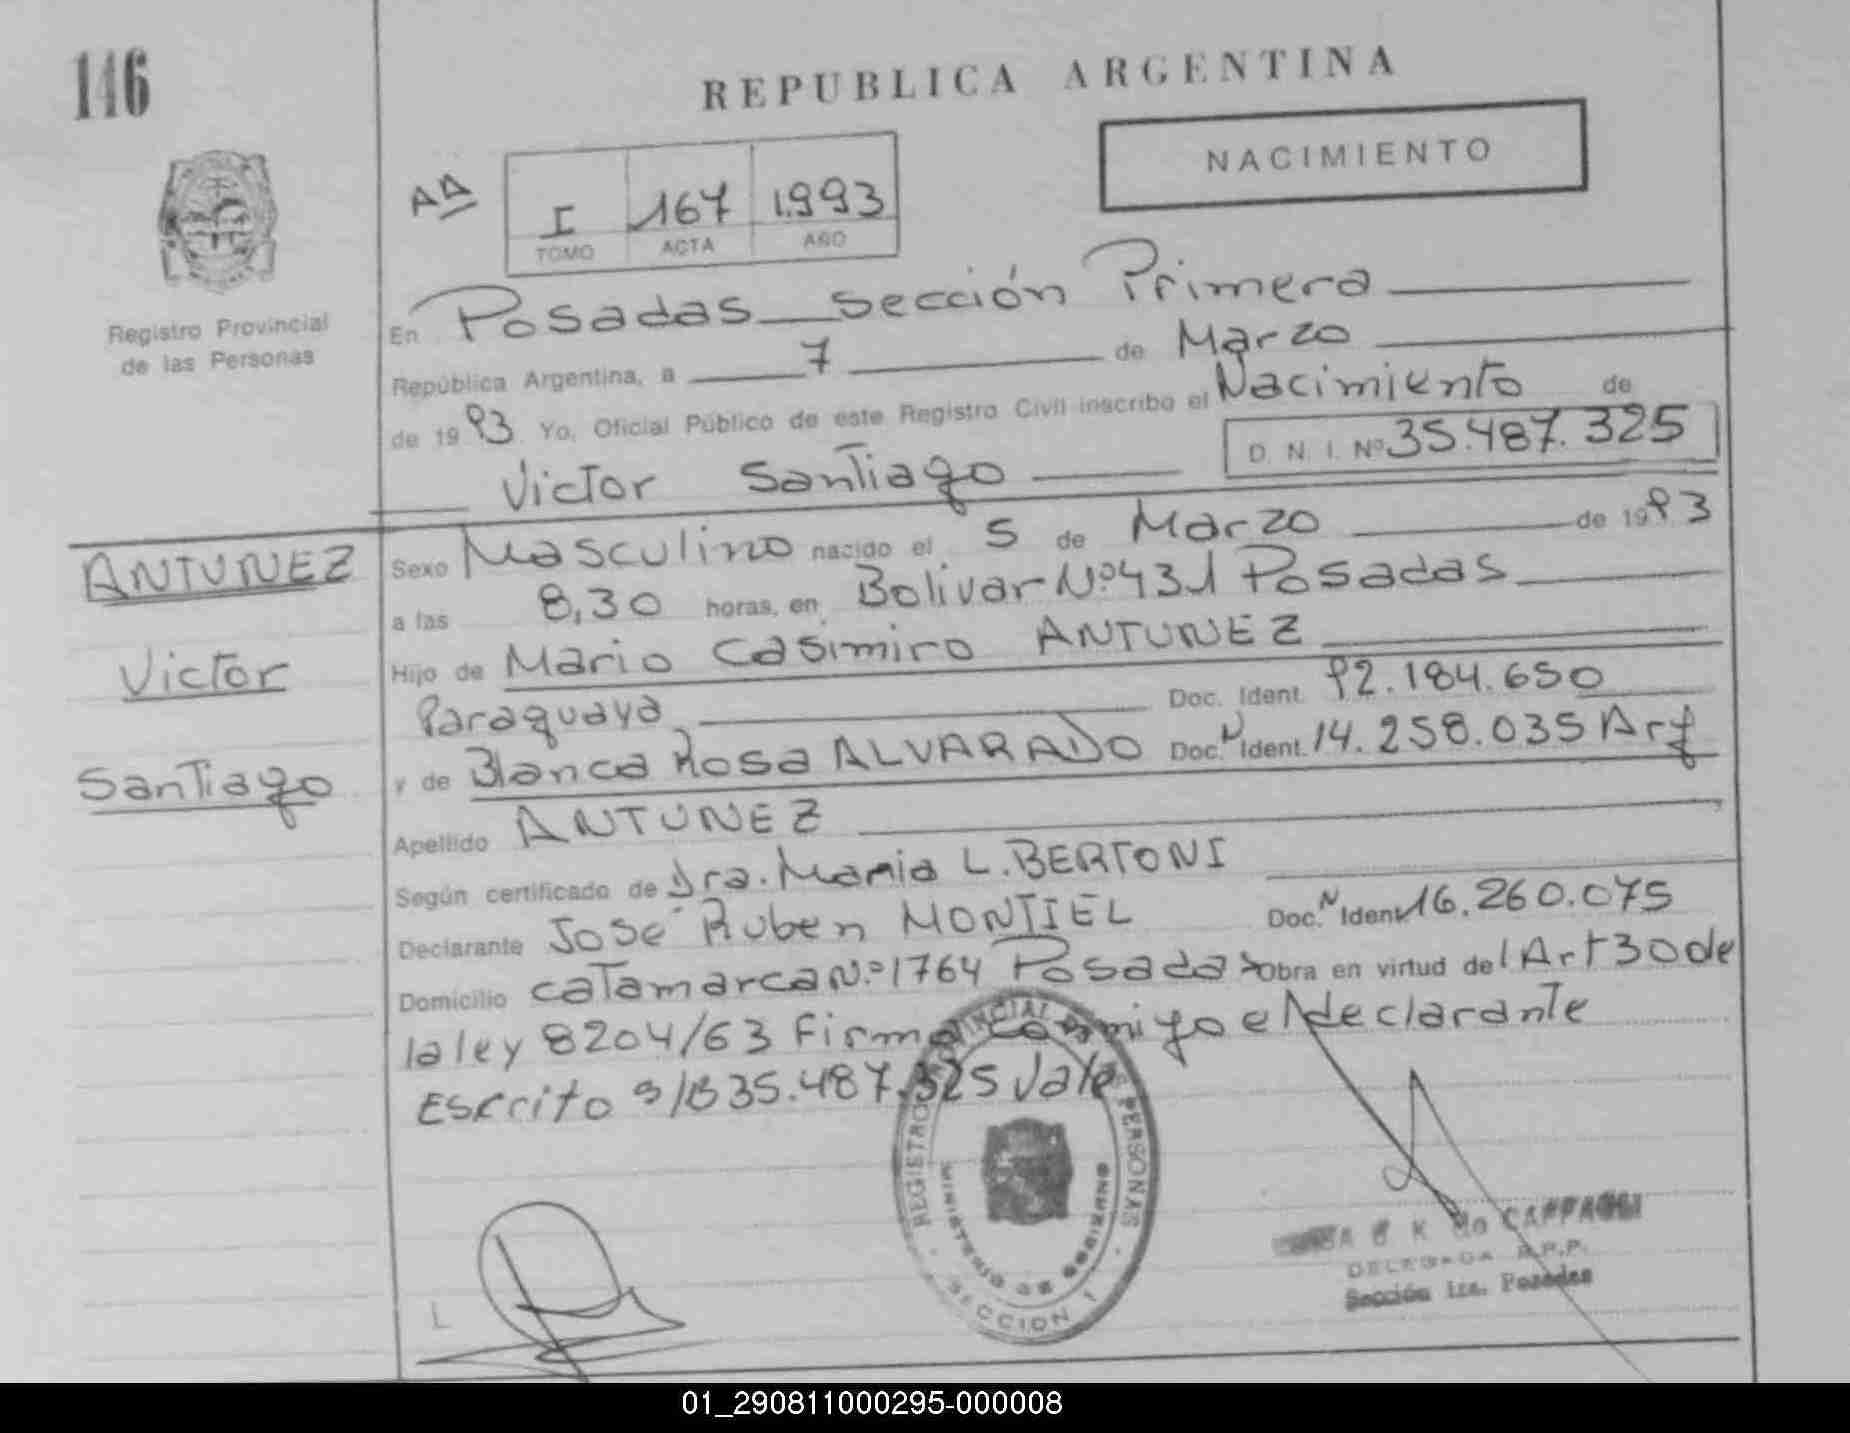 146
REPUBLICA ARGENTINA
NACIMIENTO
AA
I 167 1.993
TOMO ACTA AÑO
Registro Provincial
de las Personas
En Posadas sección Primera
República Argentina, a 7 de Marzo
de 1993 Yo, Oficial Público de este Registro Civil inscribo el Nacimiento de
D. N. I. Nº 35.487.325
Victor Santiago
ANTUNEZ
Victor
Santiago
Sexo Masculino nacido el 5 de Marzo de 1993
a las 8,30 horas, en Bolivar Nº 431 Posadas
Hijo de Mario Casimiro ANTUNEZ
Paraguaya Doc. Ident. 92.184.650
y de Blanca Rosa ALVARADO Doc. N Ident. 14.258.035 Arg
Apellido ANTUNEZ
Según certificado de Dra. Maria L. BERTONI
Declarante José Ruben MONTIEL Doc. N Ident. 16.260.075
Domicilio catamarca Nº 1764 Posadas Obra en virtud del Art 30 de
la ley 8204/63 Firma conmigo el declarante
Escrito s/B 35.487.325 Vale
REGISTRO PROVINCIAL DE LAS PERSONAS
MINISTERIO DE GOBIERNO
SECCION 1
DELEGADA R.P.P.
Sección 1ra. Posadas
01_290811000295-000008